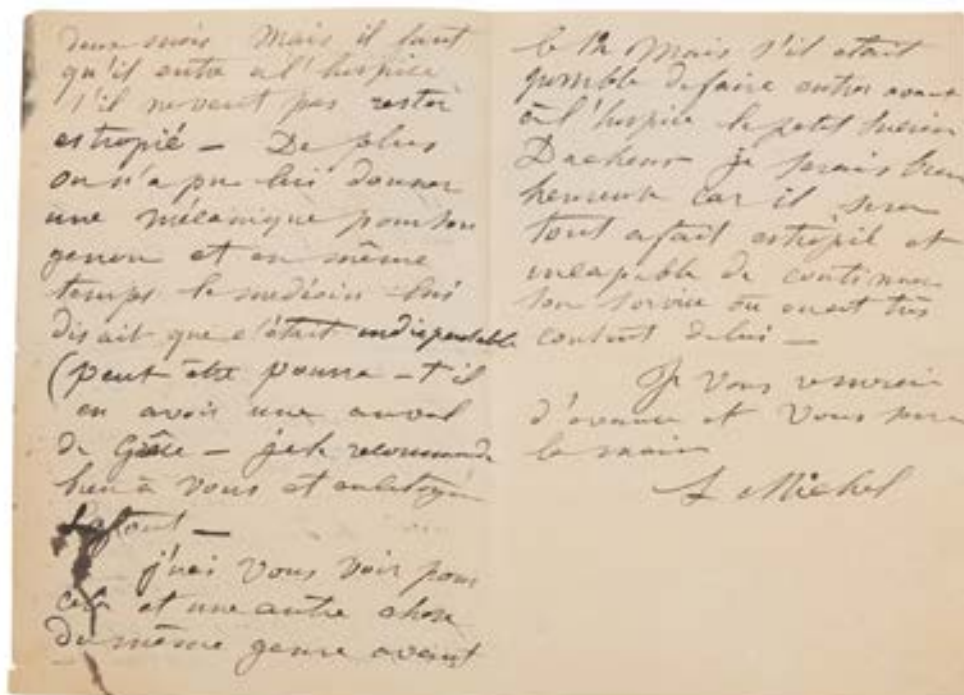 deux mois Mais il faut
qu'il entre a l'hospice
s'il ne veut pas rester
estropié — De plus
on n'a pu lui donner
une mécanique pour son
genou et en même
temps le medecin lui
disait que c'était indispensable
(peut être pourra-t'il
en avoir une au val
de Grâce — je le recommande
bien à vous et au citoyen
j'irai vous voir pour
cela et une autre chose
du même genre avant
le 12 Mais s'il etait
possible de faire entrer avant
à l'hospice le petit
je serais bien
heureuse car il sera
tout a fait estropié et
incapable de continuer
son service où on est très
content de lui —
Je vous remercie
d'avance et vous serre
la main
L Michel